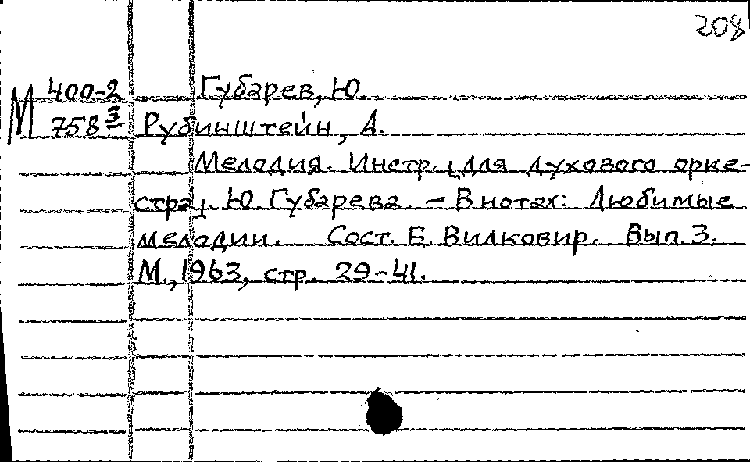 208
М 400-2 Губарев, Ю.
758 3 Рубинштейн, А.
Мелодия. Инстр. [для духового орке-
стра]. Ю. Губарева. – В нотах: Любимые
мелодии. Сост. Е. Вилковир. Вып. 3.
М., 1963, стр. 29-41.